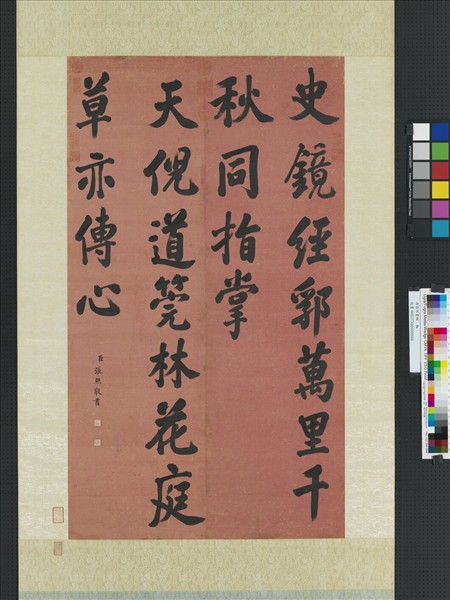 史鏡經郛萬里千
秋同指掌
天倪道筦林花庭
草亦傳心
臣張照敬書